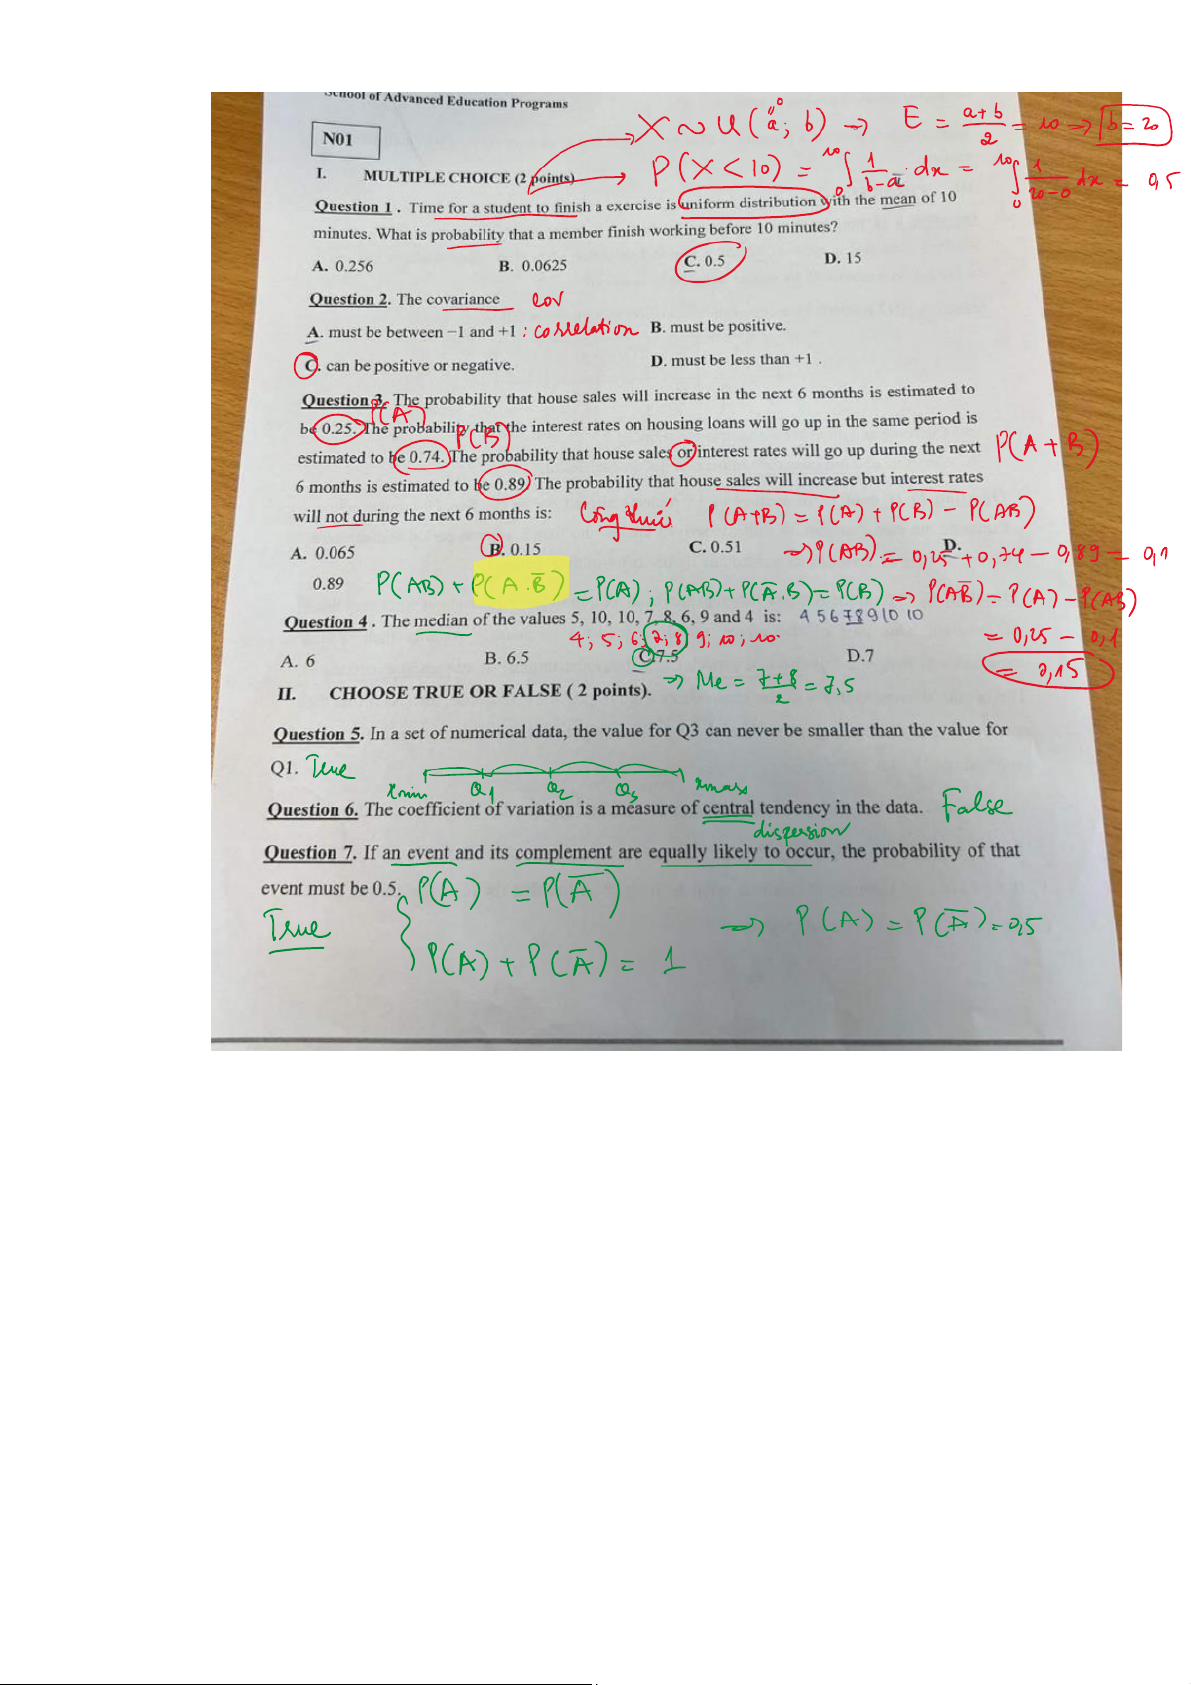 School of Advanced Education Programs
N01
X ~ U(a; b) → E = a+b/2 = 10 → b = 20
0
P(X < 10) = ∫ 1/b-a dx = ∫ 1/20-0 dx = 0,5
10 0 10 0
I. MULTIPLE CHOICE (2 points)
Question 1 . Time for a student to finish a exercise is uniform distribution with the mean of 10
minutes. What is probability that a member finish working before 10 minutes?
A. 0.256 B. 0.0625 C. 0.5 D. 15
Question 2. The covariance cov
A. must be between −1 and +1 : correlation B. must be positive.
C. can be positive or negative. D. must be less than +1 .
Question 3. The probability that house sales will increase in the next 6 months is estimated to
P(A)
be 0.25. The probability that the interest rates on housing loans will go up in the same period is
P(B)
estimated to be 0.74. The probability that house sales or interest rates will go up during the next P(A+B)
6 months is estimated to be 0.89. The probability that house sales will increase but interest rates
will not during the next 6 months is: Công thức P(A+B) = P(A) + P(B) - P(AB)
A. 0.065 B. 0.15 C. 0.51 D.
→ P(AB) = 0,25 + 0,74 - 0,89 = 0,1
0.89 P(AB) + P(A.B̅) = P(A) ; P(AB) + P(A̅.B) = P(B) → P(AB̅) = P(A) - P(AB)
= 0,25 - 0,1
= 0,15
Question 4 . The median of the values 5, 10, 10, 7, 8, 6, 9 and 4 is: 4 5 6 7 8 9 10 10
4; 5; 6; 7; 8; 9; 10; 10.
A. 6 B. 6.5 C. 7.5 D.7
→ Me = 7+8/2 = 7,5
II. CHOOSE TRUE OR FALSE ( 2 points).
Question 5. In a set of numerical data, the value for Q3 can never be smaller than the value for
Q1. True
xmin Q1 Q2 Q3 xmax
Question 6. The coefficient of variation is a measure of central tendency in the data. False
dispersion
Question 7. If an event and its complement are equally likely to occur, the probability of that
event must be 0.5. P(A) = P(A̅)
True P(A) + P(A̅) = 1 → P(A) = P(A̅) = 0,5